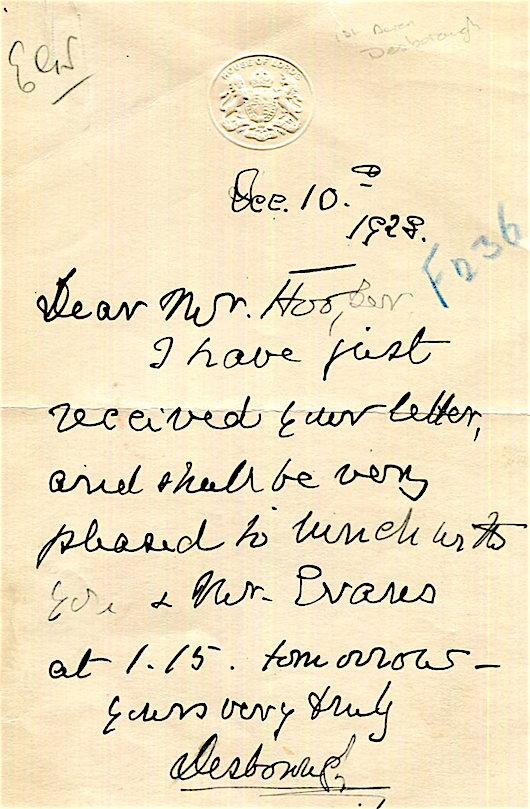 1st Baron
Desborough
HOUSE OF LORDS
Dec. 10.
1928.
F236
Dear Mr. Hooper
I have just
received your letter,
and shall be very
pleased to lunch with
you & Mr. Evans
at 1.15. tomorrow -
yours very truly
Desborough